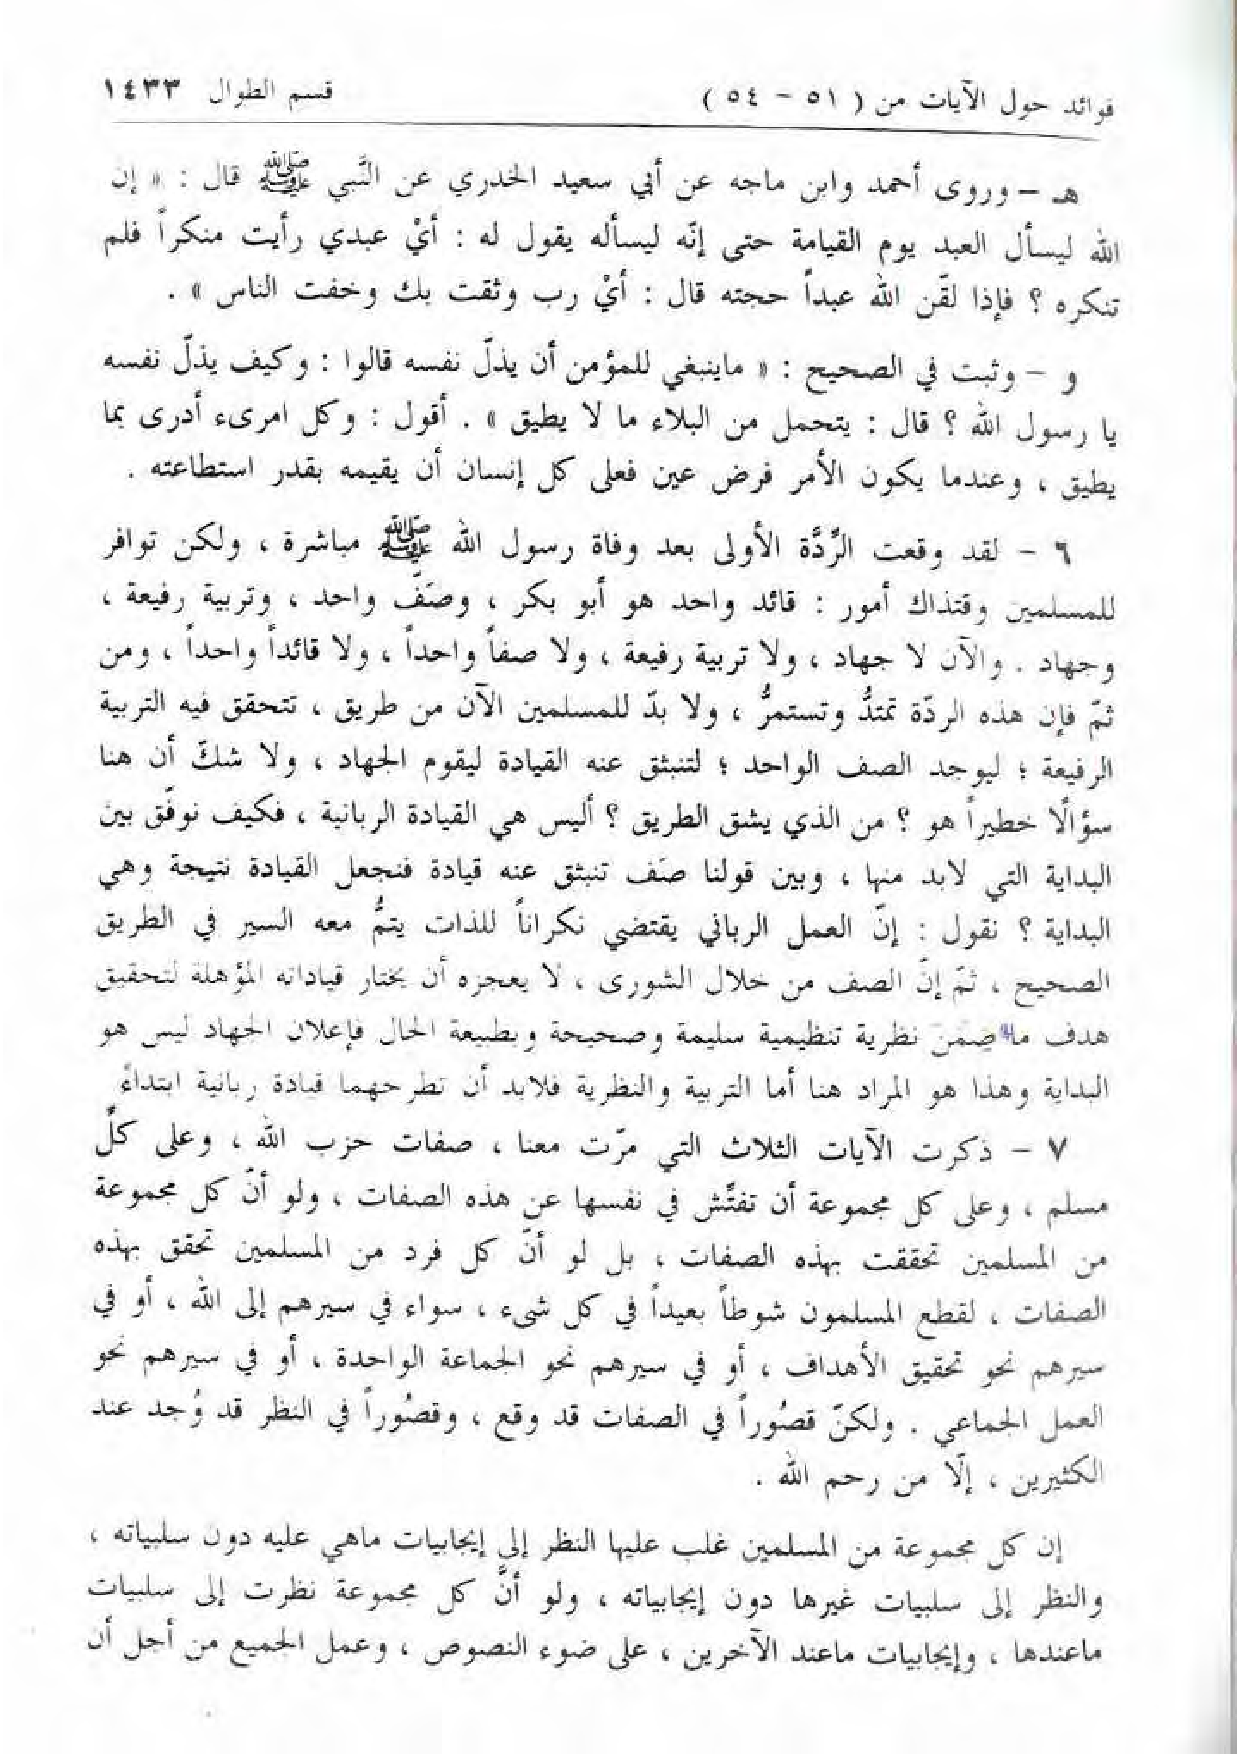 فوائد حول الآيات من ( ٥١ - ٥٤ ) قسم الطوال ١٤٣٣
هـ - وروى أحمد وابن ماجه عن أبي سعيد الخدري عن النَّبي ﷺ قال : « إن
الله ليسأل العبد يوم القيامة حتى إنّه ليسأله يقول له : أيْ عبدي رأيت منكراً فلم
تنكره ؟ فإذا لقّن الله عبداً حجته قال : أيْ رب وثقت بك وخفت الناس » .
و - وثبت في الصحيح : « ماينبغي للمؤمن أن يذلّ نفسه قالوا : وكيف يذلّ نفسه
يا رسول الله ؟ قال : يتحمل من البلاء ما لا يطيق » . أقول : وكل امرىء أدرى بما
يطيق ، وعندما يكون الأمر فرض عين فعلى كل إنسان أن يقيمه بقدر استطاعته .
٦ - لقد وقعت الرِّدَّة الأولى بعد وفاة رسول الله ﷺ مباشرة ، ولكن توافر
للمسلمين وقتذاك أمور : قائد واحد هو أبو بكر ، وصَفّ واحد ، وتربية رفيعة ،
وجهاد . والآن لا جهاد ، ولا تربية رفيعة ، ولا صفاً واحداً ، ولا قائداً واحداً ، ومن
ثمّ فإن هذه الردّة تمتدُّ وتستمرُّ ، ولا بدّ للمسلمين الآن من طريق ، تتحقق فيه التربية
الرفيعة ؛ ليوجد الصف الواحد ؛ لتنبثق عنه القيادة ليقوم الجهاد ، ولا شكّ أن هنا
سؤالًا خطيراً هو ؟ من الذي يشق الطريق ؟ أليس هي القيادة الربانية ، فكيف نوفّق بين
البداية التي لابد منها ، وبين قولنا صَف تنبثق عنه قيادة فنجعل القيادة نتيجة وهي
البداية ؟ نقول : إنّ العمل الرباني يقتضي نكراناً للذات يتمُّ معه السير في الطريق
الصحيح ، ثمّ إنّ الصف من خلال الشورى ، لا يعجزه أن يختار قياداته المؤهلة لتحقيق
هدف ما ضمن نظرية تنظيمية سليمة وصحيحة وبطبيعة الحال فإعلان الجهاد ليس هو
البداية وهذا هو المراد هنا أما التربية والنظرية فلابد أن تطرحهما قيادة ربانية ابتداءً
٧ - ذكرت الآيات الثلاث التي مرّت معنا ، صفات حزب الله ، وعلى كلِّ
مسلم ، وعلى كل مجموعة أن تفتّش في نفسها عن هذه الصفات ، ولو أنّ كل مجموعة
من المسلمين تحققت بهذه الصفات ، بل لو أنّ كل فرد من المسلمين تحقق بهذه
الصفات ، لقطع المسلمون شوطاً بعيداً في كل شيء ، سواء في سيرهم إلى الله ، أو في
سيرهم نحو تحقيق الأهداف ، أو في سيرهم نحو الجماعة الواحدة ، أو في سيرهم نحو
العمل الجماعي . ولكنّ قصُوراً في الصفات قد وقع ، وقصُوراً في النظر قد وُجد عند
الكثيرين ، إلّا من رحم الله .
إن كل مجموعة من المسلمين غلب عليها النظر إلى إيجابيات ماهي عليه دون سلبياته ،
والنظر إلى سلبيات غيرها دون إيجابياته ، ولو أنَّ كل مجموعة نظرت إلى سلبيات
ماعندها ، وإيجابيات ماعند الآخرين ، على ضوء النصوص ، وعمل الجميع من أجل أن